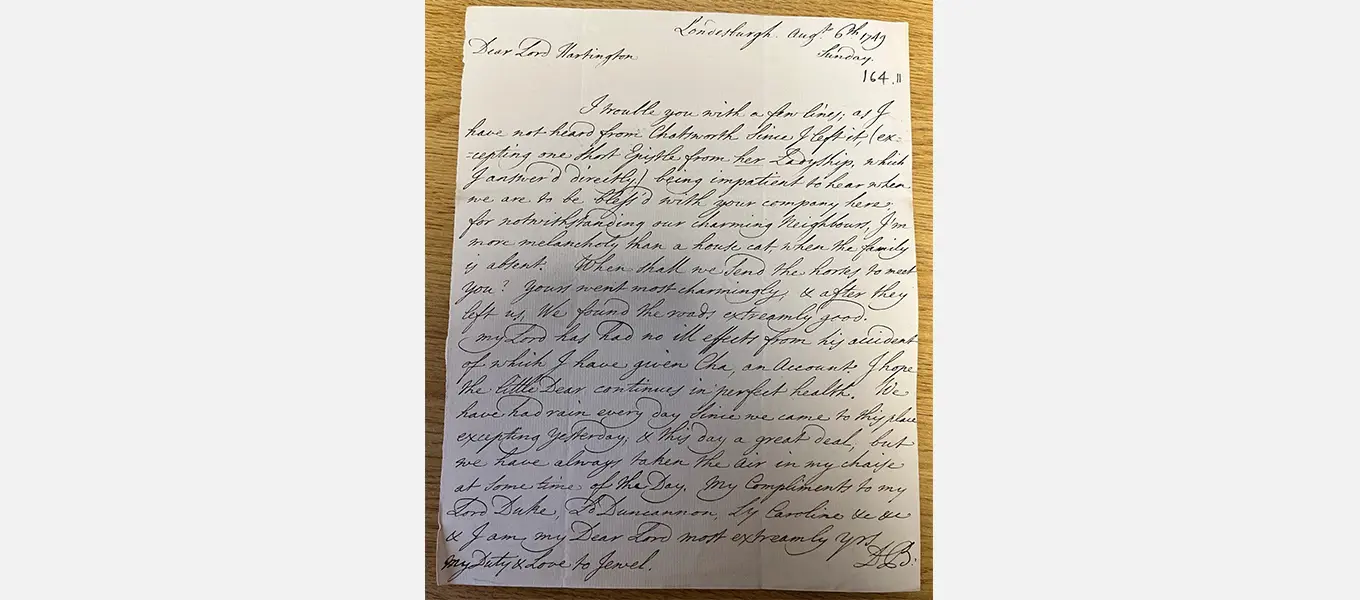 Londesburgh. Augst. 6th 1749
Sunday.
164.11
Dear Lord Hartington
I trouble you with a few lines, as I
have not heard from Chatsworth Since I left it, (ex=
=cepting one short Epistle from her Ladyship, which
I answer'd directly) being impatient to hear when
we are to be bless'd with your company here,
for notwithstanding our charming Neighbours, I'm
more melancholy than a house cat, when the family
is absent. When shall we send the horses to meet
you? Yours went most charmingly, & after they
left us, We found the roads extreamly good.
my Lord has had no ill effects from his accident
of which I have given Cha, an Account. I hope
the little Dear continues in perfect health. We
have had rain every day Since we came to this place
excepting Yesterday, & this day a great deal, but
we have always taken the Air in my chaise
at some time of the Day. My Compliments to my
Lord Duke, Ld Duncannon, Ly Caroline &c &c
& I am my Dear Lord most extreamly Yrs.
DB.
My Duty & Love to Jewel.